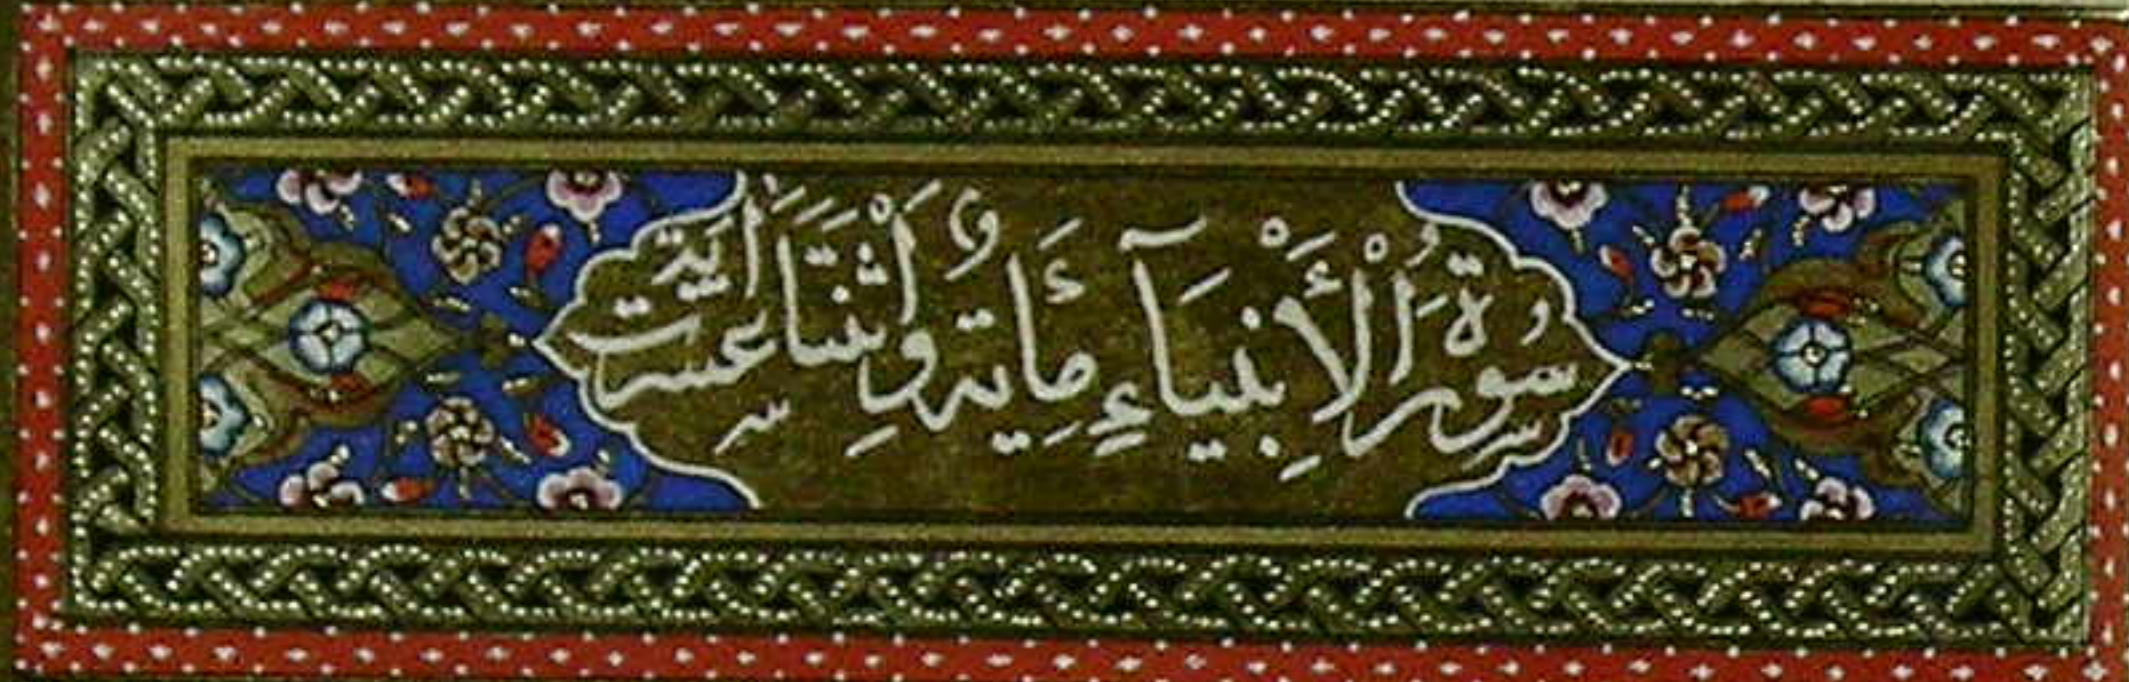 سُورَةُ الْأَنْبِيَآءِ مِائَة وَاِثْنَتَا عَشَرَت اٰيَة